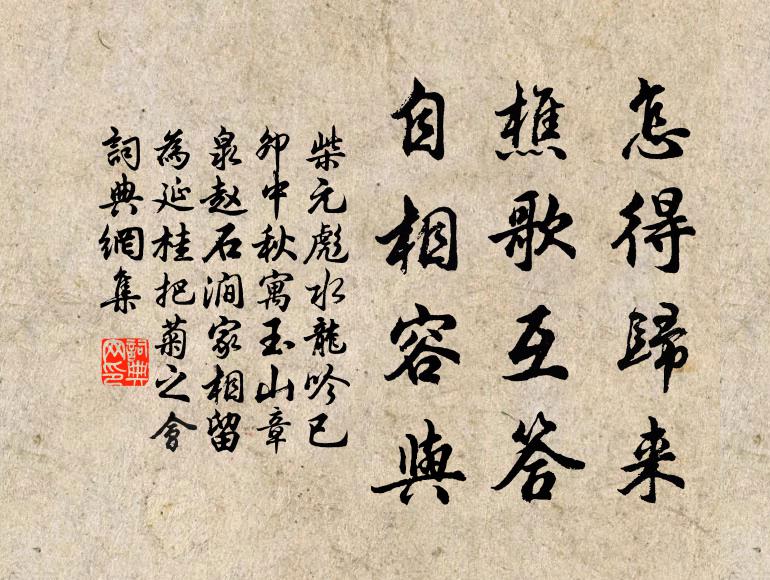 怎得歸来
樵歌互答
自相容與
柴元彪水龍吟已
卯中秋寓玉山章
泉赵石澗家相留
為延桂把菊之會
詞典網集
詞典
网印